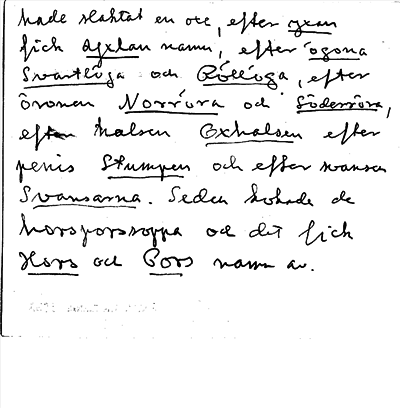 hade slaktat en oxe, efter yxan
fick Yxlan namn, efter ögona
Svartlöga och Rödlöga, efter
öronen Norröra och Söderröra,
efter halsen Oxhalsen efter
penis Stumpen och efter svansen
Svansarna. Sedan kokade de
korsporssoppa och det fick
Kors och Pors namn av.